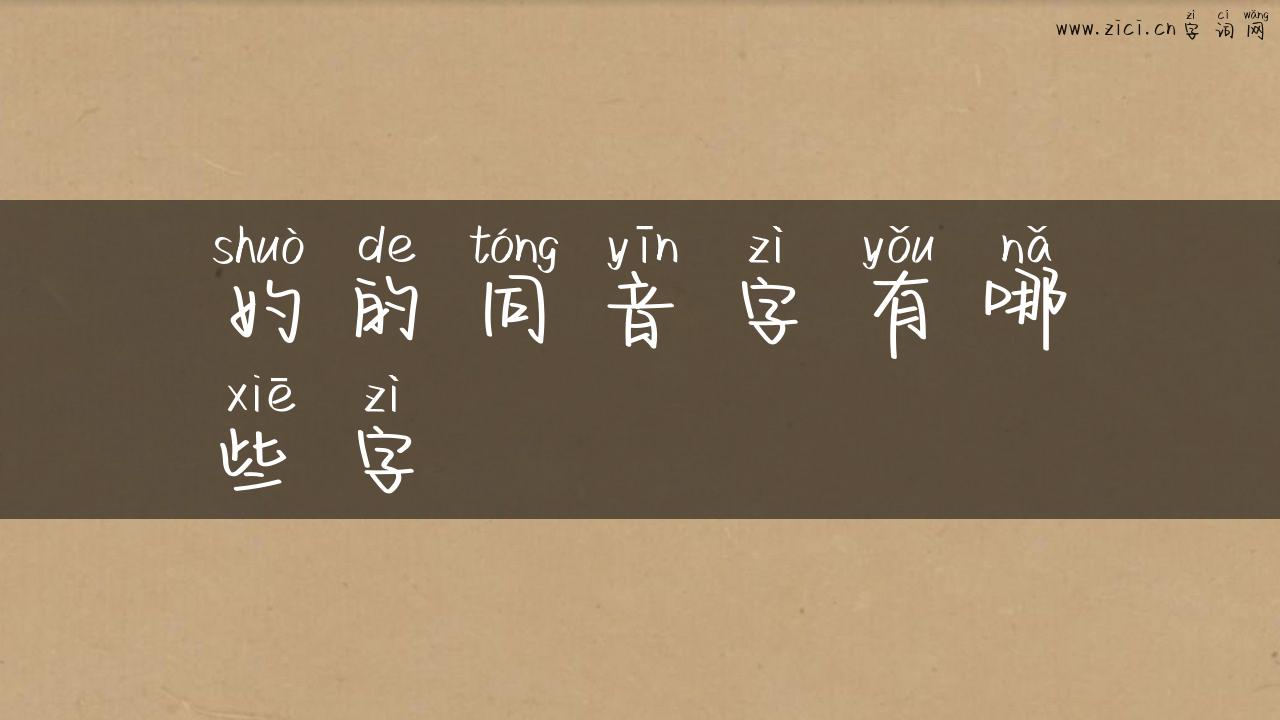 zì cí wǎng
www.zici.cn 字 词 网
shuò de tóng yīn zì yǒu nǎ
妁 的 同 音 字 有 哪
xiē zì
些 字